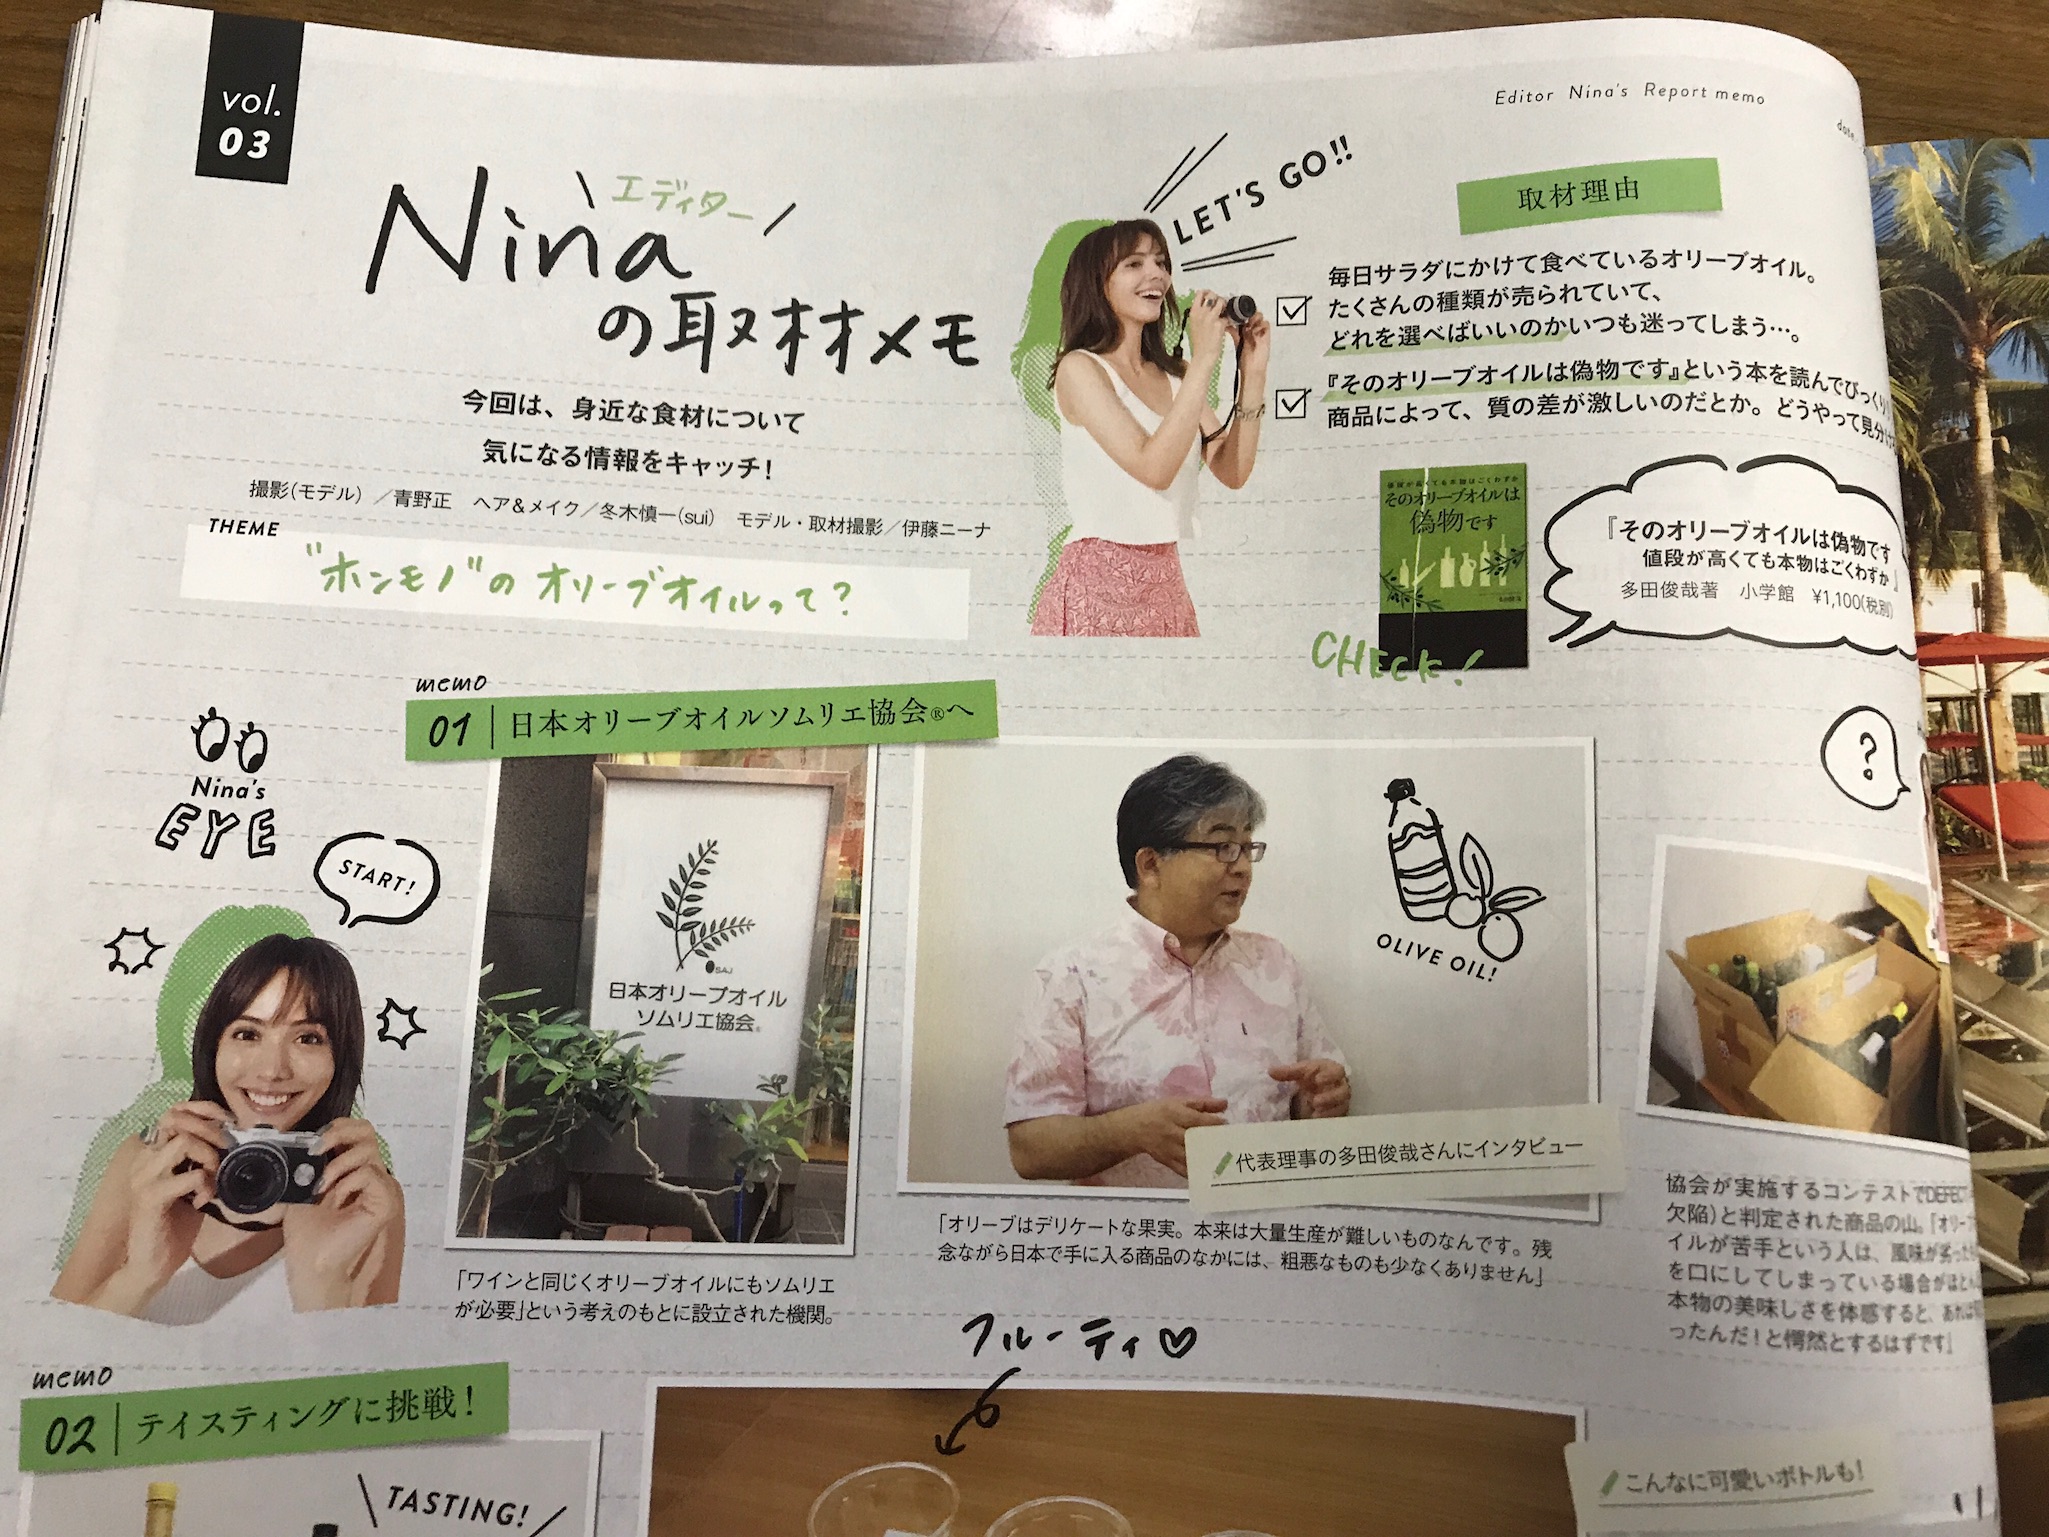 vol.
03
Editor Nina's Report memo
エディター
Nina
の取材メモ
今回は、身近な食材について
気になる情報をキャッチ！
撮影（モデル）／青野正　ヘア＆メイク／冬木慎一（sui）　モデル・取材撮影／伊藤ニーナ
THEME
"ホンモノ"の オリーブオイルって？
LET'S GO!!
取材理由
毎日サラダにかけて食べているオリーブオイル。
たくさんの種類が売られていて、
どれを選べばいいのかいつも迷ってしまう…。
『そのオリーブオイルは偽物です』という本を読んでびっくり
商品によって、質の差が激しいのだとか。どうやって見分け
値段が高くても本物はごくわずか
そのオリーブオイルは
偽物です
CHECK!
『そのオリーブオイルは偽物です
値段が高くても本物はごくわずか』
多田俊哉著　小学館　¥1,100（税別）
memo
01 | 日本オリーブオイルソムリエ協会®へ
Nina's
EYE
START!
日本オリーブオイル
ソムリエ協会®
「ワインと同じくオリーブオイルにもソムリエ
が必要」という考えのもとに設立された機関。
OLIVE OIL!
代表理事の多田俊哉さんにインタビュー
「オリーブはデリケートな果実。本来は大量生産が難しいものなんです。残
念ながら日本で手に入る商品のなかには、粗悪なものも少なくありません」
?
協会が実施するコンテストでDEFECT
欠陥）と判定された商品の山。「オリーブ
イルが苦手という人は、風味が劣った
を口にしてしまっている場合がほとん
本物の美味しさを体感すると、あれは
ったんだ！と愕然とするはずです」
memo
02 | テイスティングに挑戦！
TASTING!
フルーティ♡
こんなに可愛いボトルも！